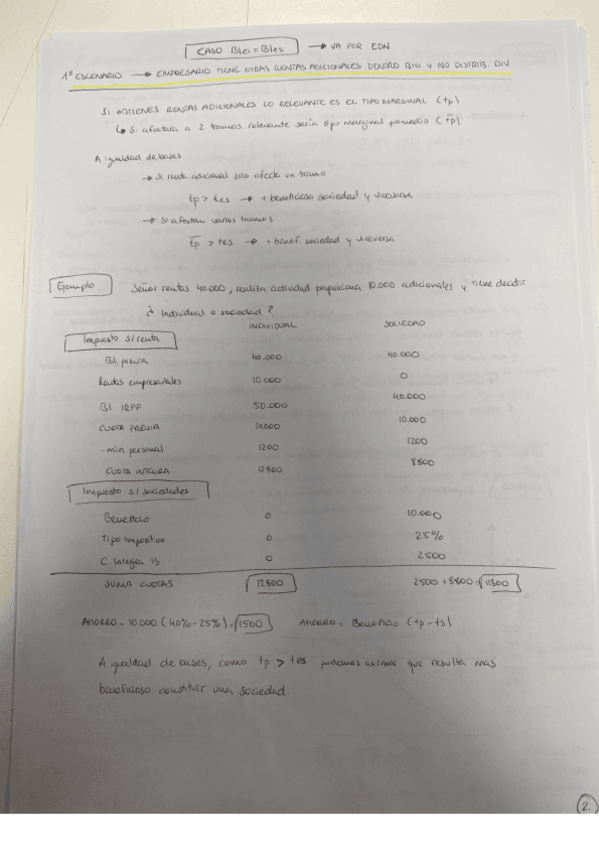 CASO BIei = BIes → VA POR EDN
1º ESCENARIO → EMPRESARIO TIENE OTRAS RENTAS ADICIONALES DENTRO BIG Y NO DISTRIB. DIV
SI OBTIENES RENTAS ADICIONALES LO RELEVANTE ES EL TIPO MARGINAL (tp)
↳ Si afectara a 2 tramos relevante seria tipo marginal promedio (t̄p)
A igualdad de bases
→ Si renta adicional solo afecta un tramo
tp > tes → + beneficioso sociedad y viceversa
→ Si afectan varios tramos
t̄p > tes → + benef. sociedad y viceversa
Ejemplo Señor rentas 40.000, realiza actividad proporciona 10.000 adicionales y tiene decidir
¿ Individual o sociedad ?
INDIVIDUAL SOCIEDAD
Impuesto s/renta
BI previa 40.000 40.000
Rentas empresariales 10.000 0
BI IRPF 50.000 40.000
CUOTA PREVIA 14000 10.000
- min personal 1200 1200
CUOTA INTEGRA 12800 8800
Impuesto s/ sociedades
Beneficio 0 10.000
Tipo impositivo 0 25%
C. Integra IS 0 2500
SUMA CUOTAS 12800 2500 + 8800 = 11300
AHORRO = 10000 (40% - 25%) = 1500 AHORRO = Beneficio (tp - ts)
A igualdad de bases, como tp > tes podemos afirmar que resulta mas
beneficioso constituir una sociedad.
2